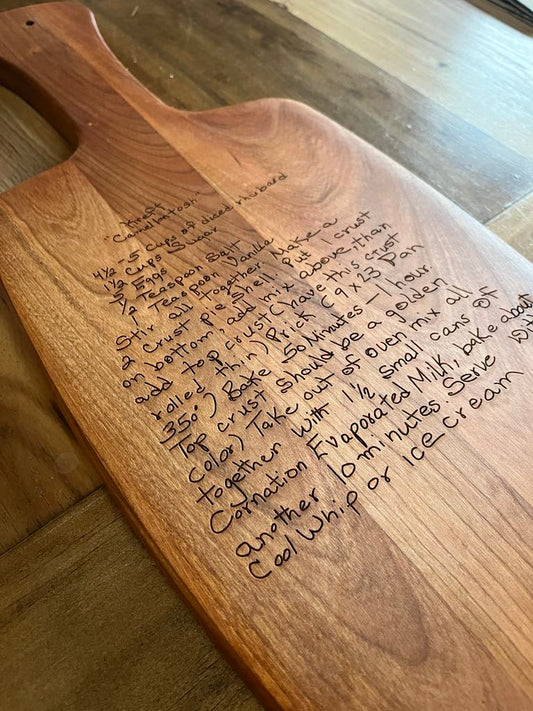 "Kieft
Clanellontosh"
4½ - 5 cups of diced rhubarb
1½ Cups Sugar
5 Eggs
½ Teaspoon Salt
1 Teaspoon Vanilla
Stir all together. Make a
2 crust Pie Shell. Put 1 crust
on bottom, add mix above, then
add top crust (have this crust
rolled thin) Prick (9 x 13 Pan
350°) Bake 50 Minutes - 1 hour.
Top crust should be a golden
color) Take out of oven mix all
together with 1½ small cans of
Cornation Evaporated Milk, bake about
another 10 minutes. Serve with
Cool Whip or ice cream